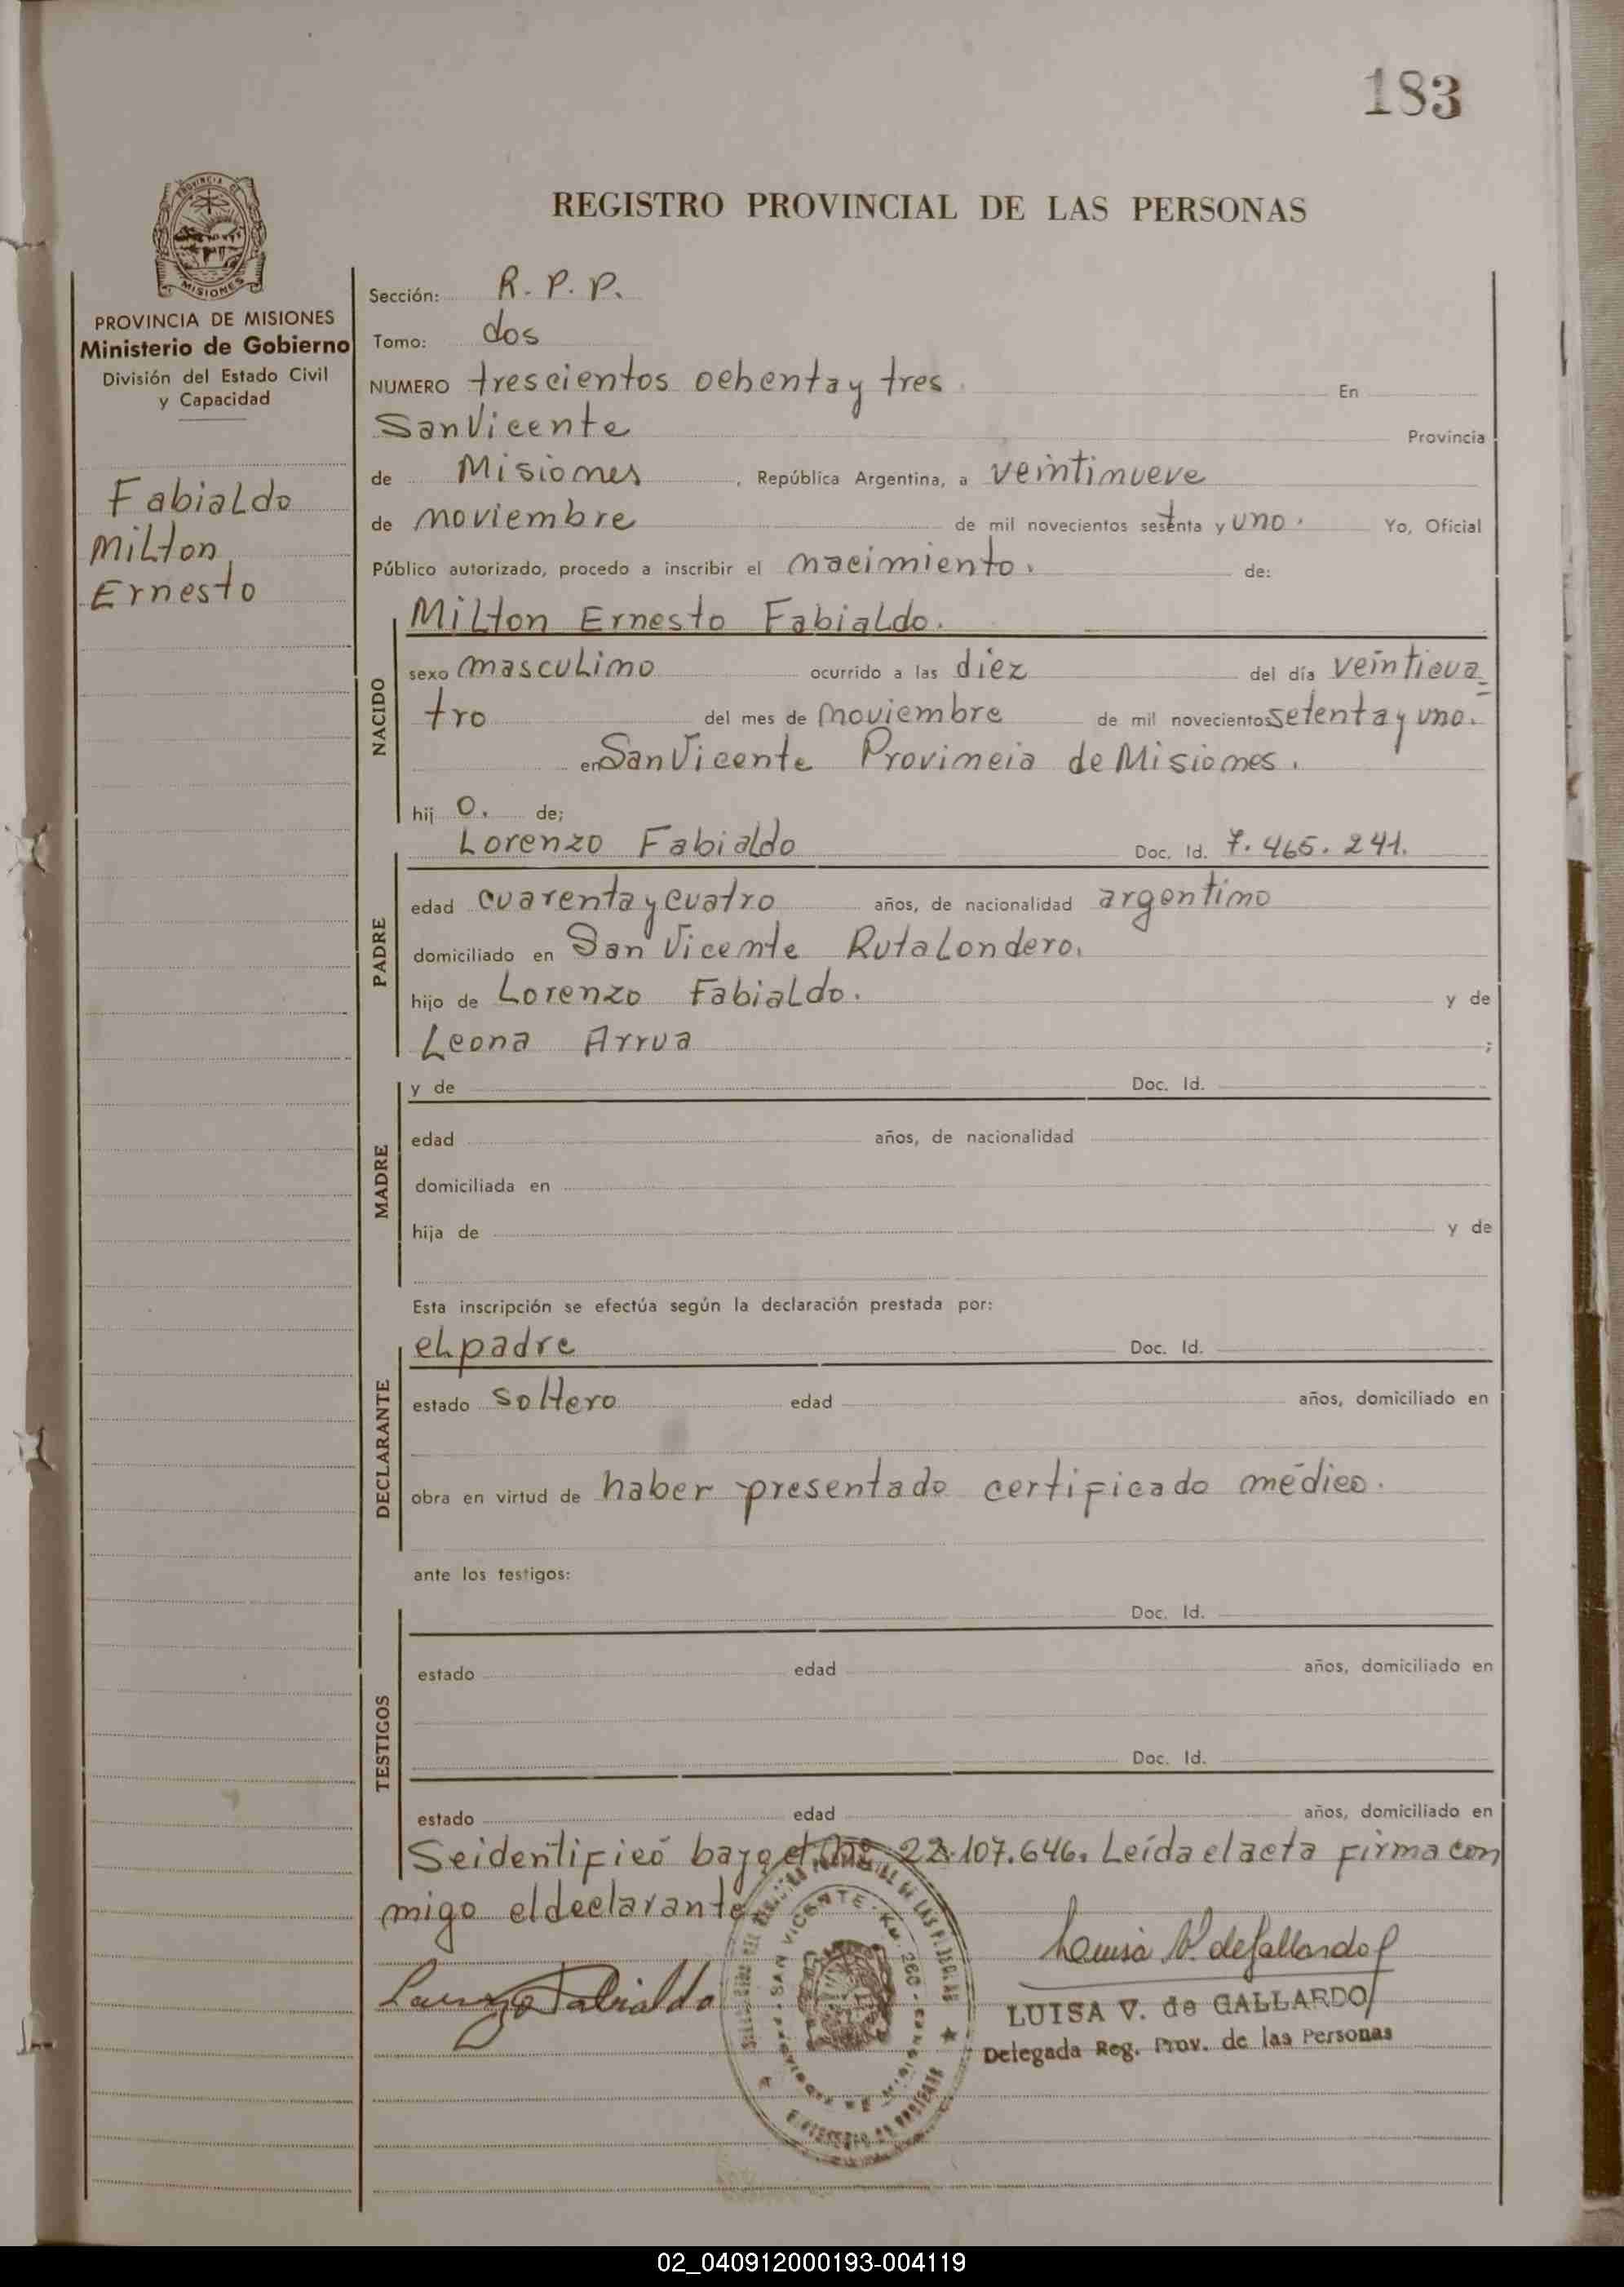 183
PROVINCIA DE
MISIONES
REGISTRO PROVINCIAL DE LAS PERSONAS
PROVINCIA DE MISIONES
Ministerio de Gobierno
División del Estado Civil
y Capacidad
Fabialdo
Milton
Ernesto
Sección: R. P. P.
Tomo: dos
NUMERO trescientos ochenta y tres En
San Vicente Provincia
de Misiones, República Argentina, a veintinueve
de noviembre de mil novecientos sesenta y uno. Yo, Oficial
Público autorizado, procedo a inscribir el nacimiento. de:
NACIDO
Milton Ernesto Fabialdo.
sexo masculino ocurrido a las diez del día veinticua=
tro del mes de noviembre de mil novecientos setenta y uno.
en San Vicente Provincia de Misiones.
hij o. de;
PADRE
Lorenzo Fabialdo Doc. Id. 7.465.241.
edad cuarenta y cuatro años, de nacionalidad argentino
domiciliado en San Vicente Ruta Londero.
hijo de Lorenzo Fabialdo. y de
Leona Arrua ;
MADRE
y de Doc. Id.
edad años, de nacionalidad
domiciliada en
hija de y de
Esta inscripción se efectúa según la declaración prestada por:
DECLARANTE
el padre Doc. Id.
estado soltero edad años, domiciliado en
obra en virtud de haber presentado certificado médico.
ante los testigos:
TESTIGOS
Doc. Id.
estado edad años, domiciliado en
Doc. Id.
estado edad años, domiciliado en
Se identificó bajo el Nº 22.107.646. Leída el acta firma con
migo el declarante
Lorenzo Fabialdo
Luisa V. de Gallardo
LUISA V. de GALLARDO
Delegada Reg. Prov. de las Personas
SAN VICENTE - Km. 260
02_040912000193-004119